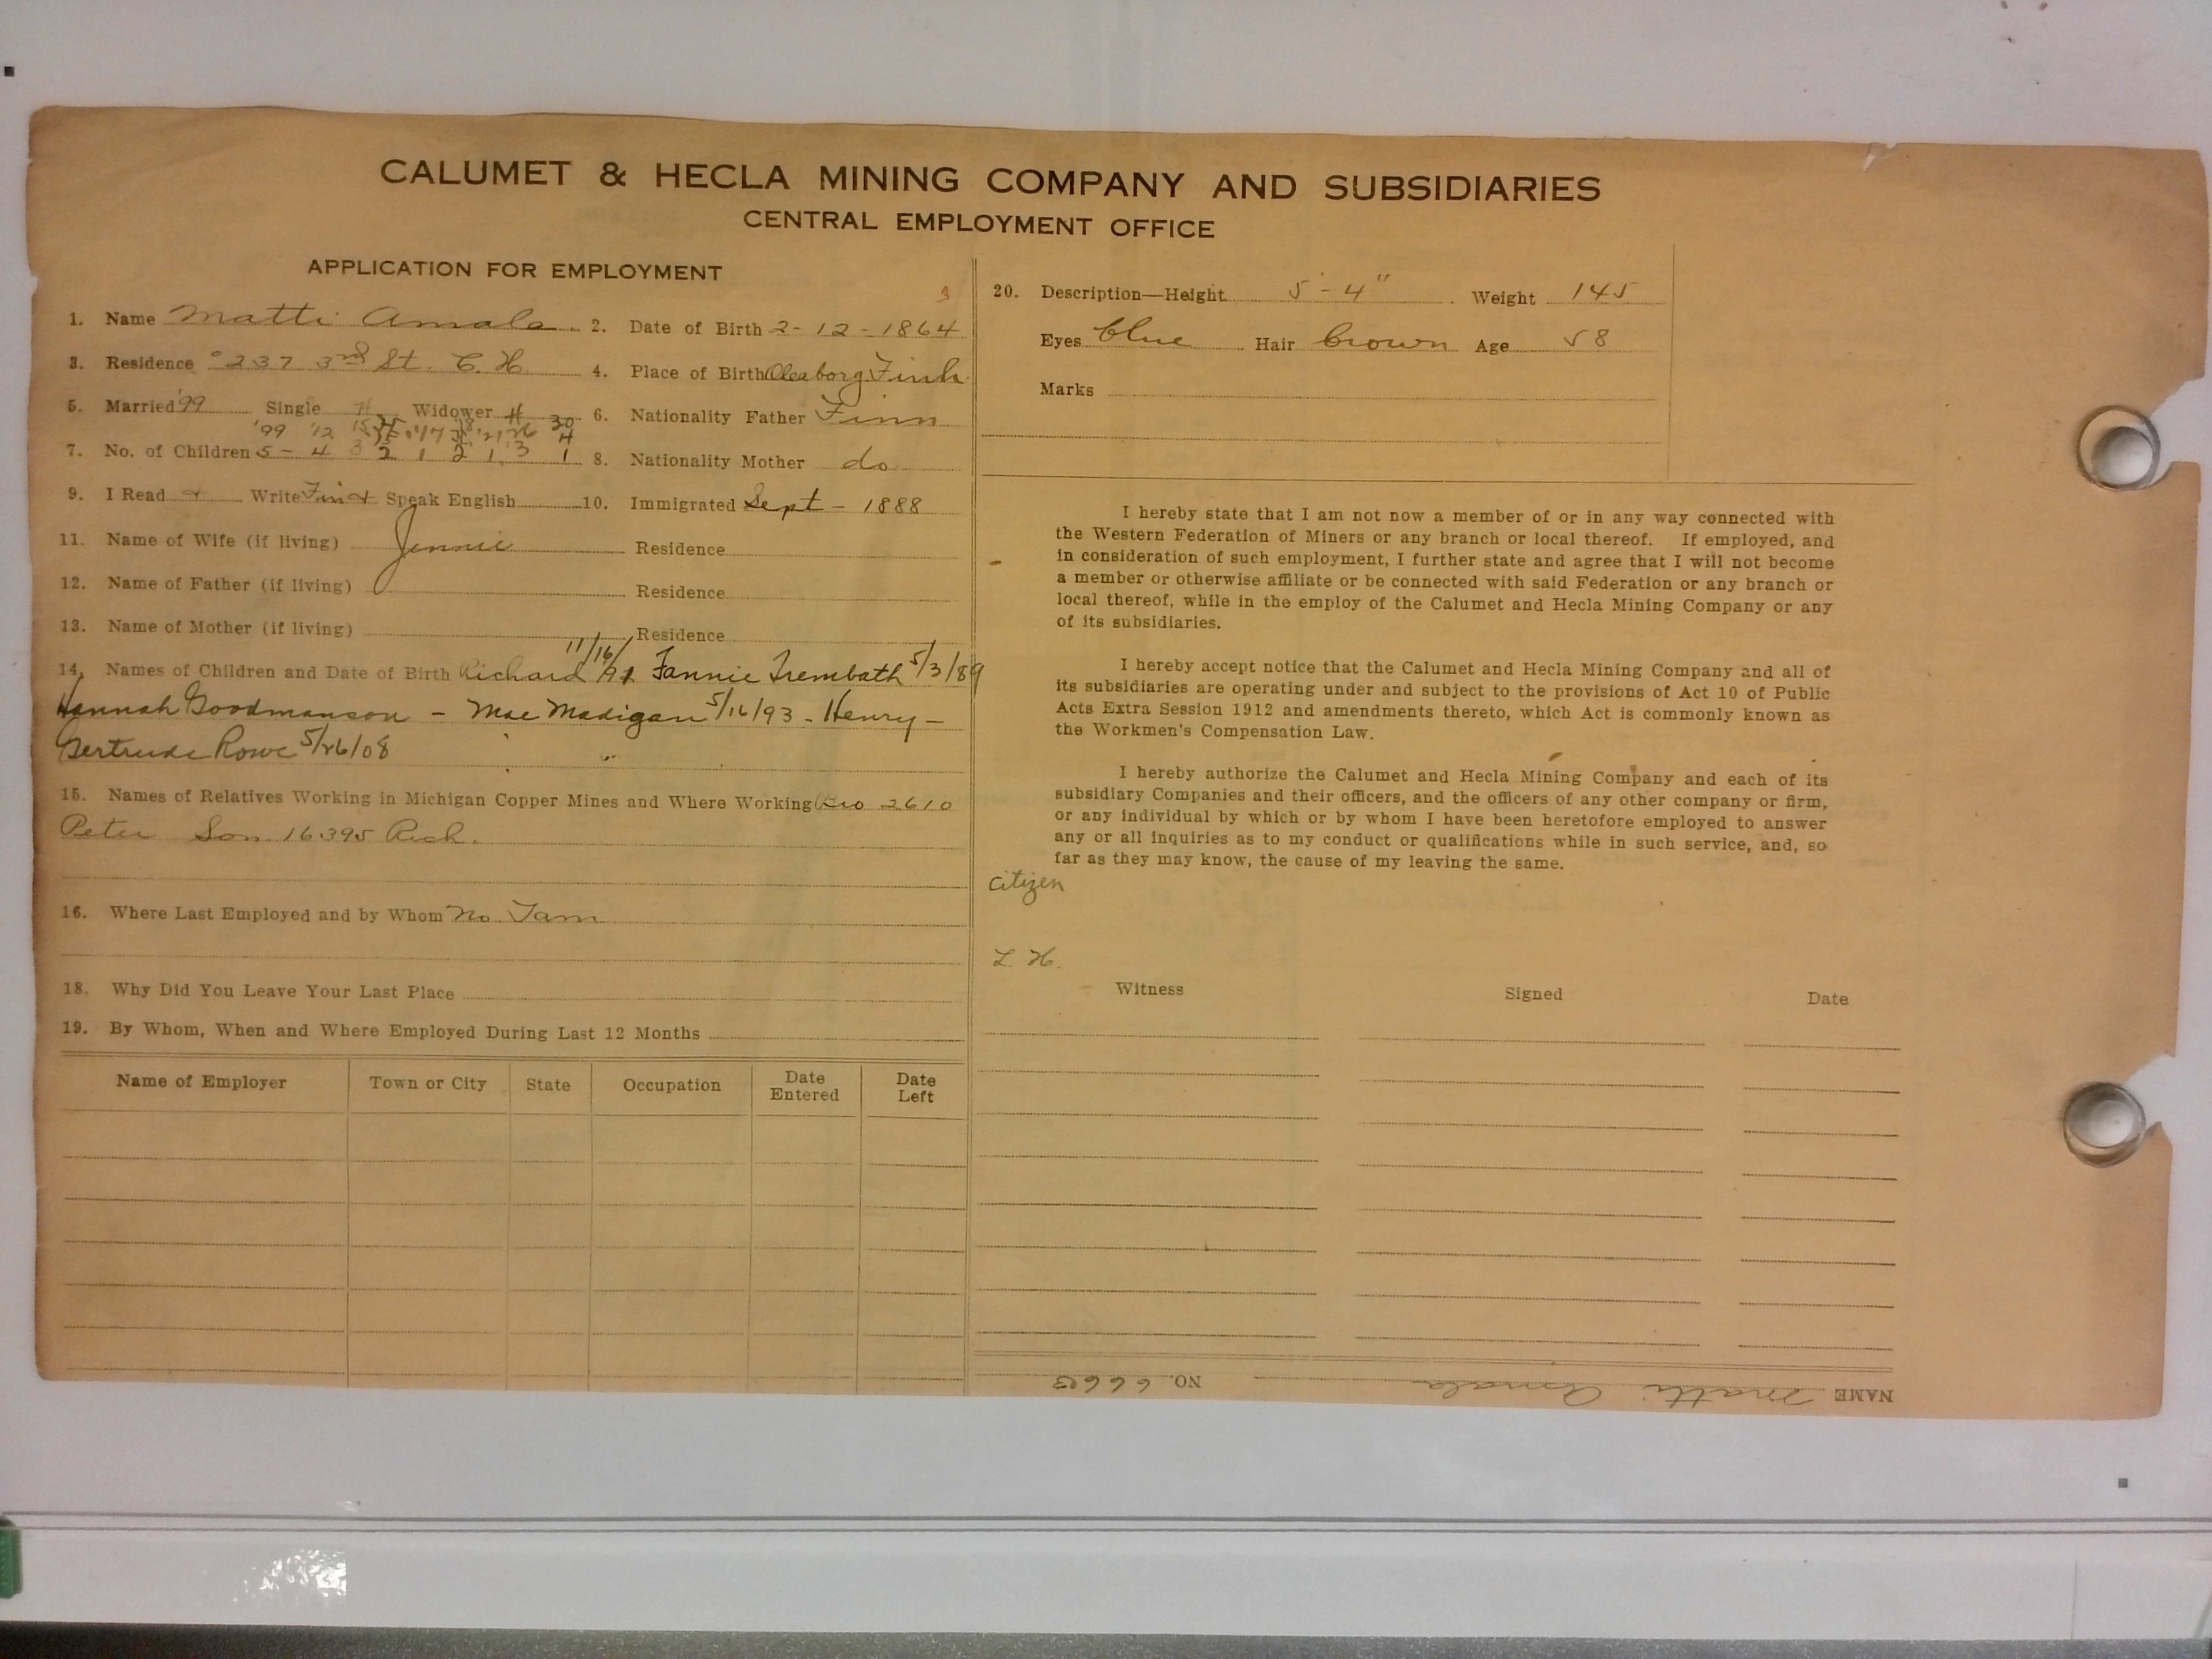 CALUMET & HECLA MINING COMPANY AND SUBSIDIARIES
CENTRAL EMPLOYMENT OFFICE
APPLICATION FOR EMPLOYMENT
3
1. Name Matti Amala 2. Date of Birth 2-12-1864
3. Residence 237 3rd St. C. H. 4. Place of Birth Oleaborg Finh
5. Married '99 Single H Widower H 6. Nationality Father Finn
'99 '12 15 '17 '21 26 30
7. No. of Children 5 - 4 3 2 1 2 1 3 1 8. Nationality Mother do
9. I Read Write Fin Speak English 10. Immigrated Sept - 1888
11. Name of Wife (if living) Jennie Residence
12. Name of Father (if living) Residence
13. Name of Mother (if living) Residence
14. Names of Children and Date of Birth Richard 11/16/91 Fannie Trembath 5/3/89
Hannah Goodmanson - Mae Madigan 5/16/93 - Henry -
Gertrude Rowe 5/26/08
15. Names of Relatives Working in Michigan Copper Mines and Where Working Bro 2610
Peter Son 16395 Rich.
16. Where Last Employed and by Whom No. Tam
18. Why Did You Leave Your Last Place
19. By Whom, When and Where Employed During Last 12 Months
Name of Employer Town or City State Occupation Date Entered Date Left
20. Description—Height 5'-4" Weight 145
Eyes blue Hair brown Age 58
Marks
I hereby state that I am not now a member of or in any way connected with
the Western Federation of Miners or any branch or local thereof. If employed, and
in consideration of such employment, I further state and agree that I will not become
a member or otherwise affiliate or be connected with said Federation or any branch or
local thereof, while in the employ of the Calumet and Hecla Mining Company or any
of its subsidiaries.
I hereby accept notice that the Calumet and Hecla Mining Company and all of
its subsidiaries are operating under and subject to the provisions of Act 10 of Public
Acts Extra Session 1912 and amendments thereto, which Act is commonly known as
the Workmen's Compensation Law.
I hereby authorize the Calumet and Hecla Mining Company and each of its
subsidiary Companies and their officers, and the officers of any other company or firm,
or any individual by which or by whom I have been heretofore employed to answer
any or all inquiries as to my conduct or qualifications while in such service, and, so
far as they may know, the cause of my leaving the same.
Citizen
L. H.
Witness Signed Date
NAME Matti Amala NO.